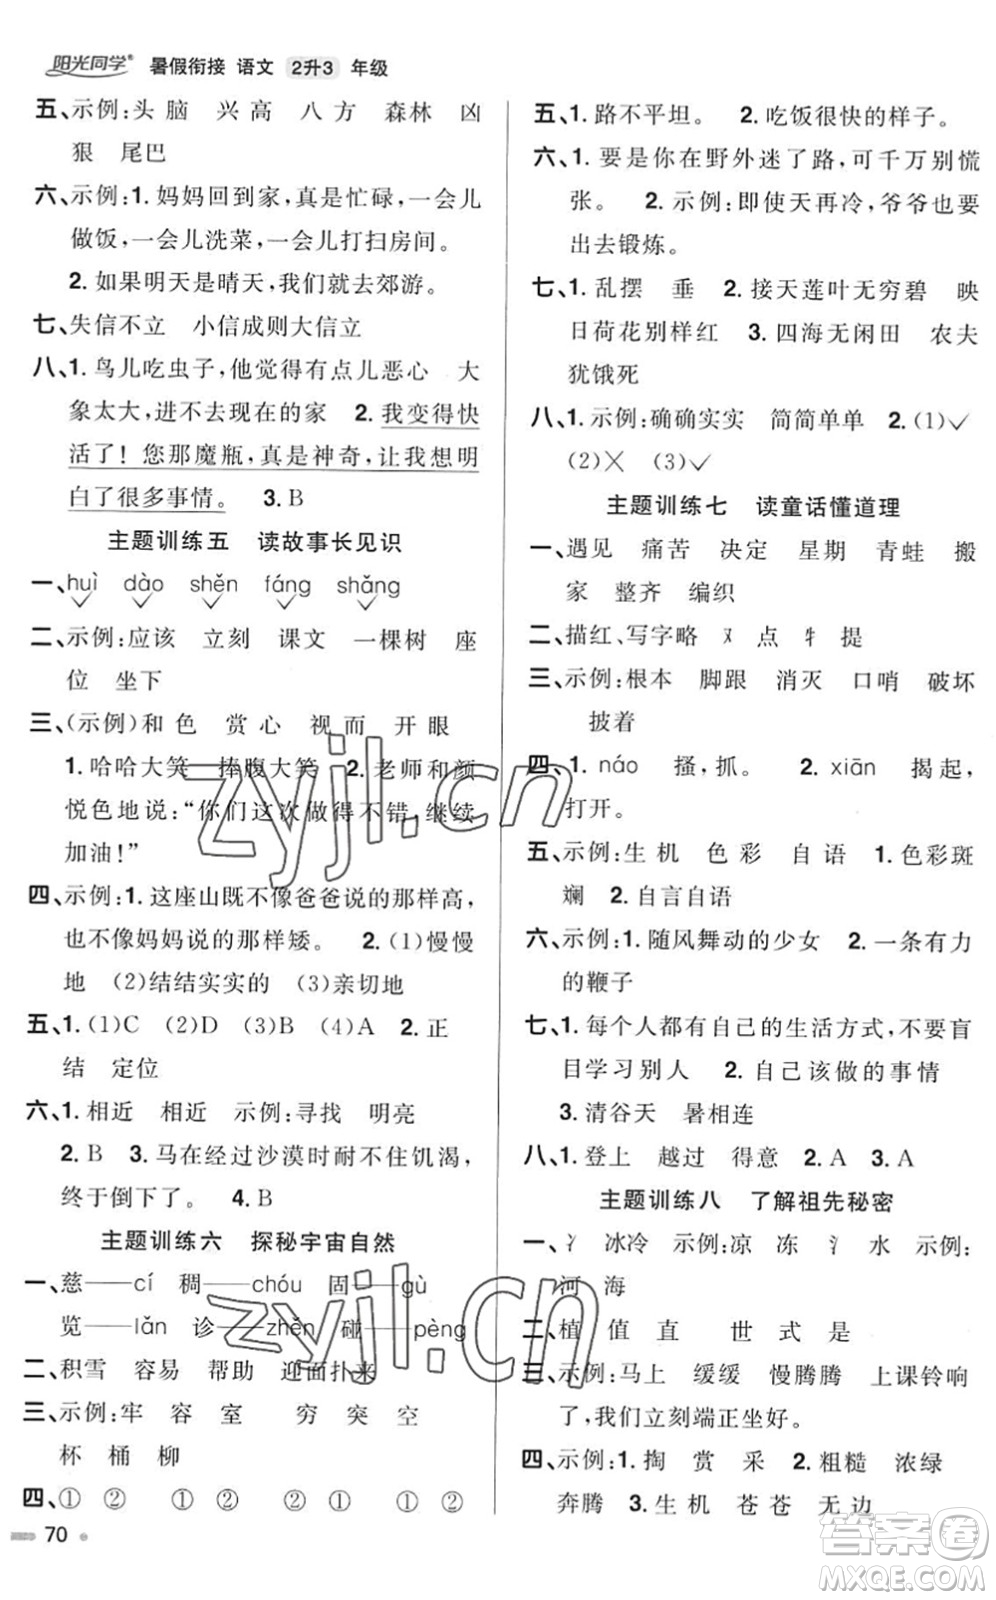 阳光同学® 暑假衔接 语文 2升3 年级
五、示例:头 脑 兴 高 八 方 森林 凶
狠 尾巴
六、示例:1. 妈妈回到家,真是忙碌,一会儿
做饭,一会儿洗菜,一会儿打扫房间。
2. 如果明天是晴天,我们就去郊游。
七、失信不立 小信成则大信立
八、1. 鸟儿吃虫子,他觉得有点儿恶心 大
象太大,进不去现在的家 2. 我变得快
活了!您那魔瓶,真是神奇,让我想明
白了很多事情。 3. B
主题训练五 读故事长见识
一、huì dào shěn fáng shǎng
二、示例:应该 立刻 课文 一棵树 座
位 坐下
三、(示例)和 色 赏 心 视 而 开 眼
1. 哈哈大笑 捧腹大笑 2. 老师和颜
悦色地说:“你们这次做得不错,继续
加油!”
四、示例:1. 这座山既不像爸爸说的那样高,
也不像妈妈说的那样矮。 2. (1)慢慢
地 (2)结结实实的 (3)亲切地
五、1. (1)C (2)D (3)B (4)A 2. 正
结 定位
六、1. 相近 相近 示例:寻找 明亮
2. B 3. 马在经过沙漠时耐不住饥渴,
终于倒下了。 4. B
主题训练六 探秘宇宙自然
一、慈——cí 稠——chóu 固——gù
览——lǎn 诊——zhěn 碰——pèng
二、积雪 容易 帮助 迎面扑来
三、示例:牢 容 室 穷 突 空
杯 桶 柳
四、① ② ① ② ② ① ① ②
70
五、1. 路不平坦。 2. 吃饭很快的样子。
六、1. 要是你在野外迷了路,可千万别慌
张。 2. 示例:即使天再冷,爷爷也要
出去锻炼。
七、1. 乱摆 垂 2. 接天莲叶无穷碧 映
日荷花别样红 3. 四海无闲田 农夫
犹饿死
八、1. 示例:确确实实 简简单单 2. (1)✓
(2)✕ (3)✓
主题训练七 读童话懂道理
一、遇见 痛苦 决定 星期 青蛙 搬
家 整齐 编织
二、描红、写字略 ㄡ 点 牜 提
三、示例:根本 脚跟 消灭 口哨 破坏
披着
四、1. náo 搔,抓。 2. xiān 揭起,
打开。
五、示例:生 机 色 彩 自 语 1. 色彩斑
斓 2. 自言自语
六、示例:1. 随风舞动的少女 2. 一条有力
的鞭子
七、1. 每个人都有自己的生活方式,不要盲
目学习别人 2. 自己该做的事情
3. 清谷天 暑相连
八、1. 登上 越过 得意 2. A 3. A
主题训练八 了解祖先秘密
一、冫 冰冷 示例:凉 冻 氵 水 示例:
河 海
二、植 值 直 世 式 是
三、示例:马上 缓缓 慢腾腾 上课铃响
了,我们立刻端正坐好。
四、示例:1. 掏 赏 采 2. 粗糙 浓绿
奔腾 3. 生 机 苍 苍 无 边
zyjl.cn
zyjl.cn
答案圈
MXQE.COM